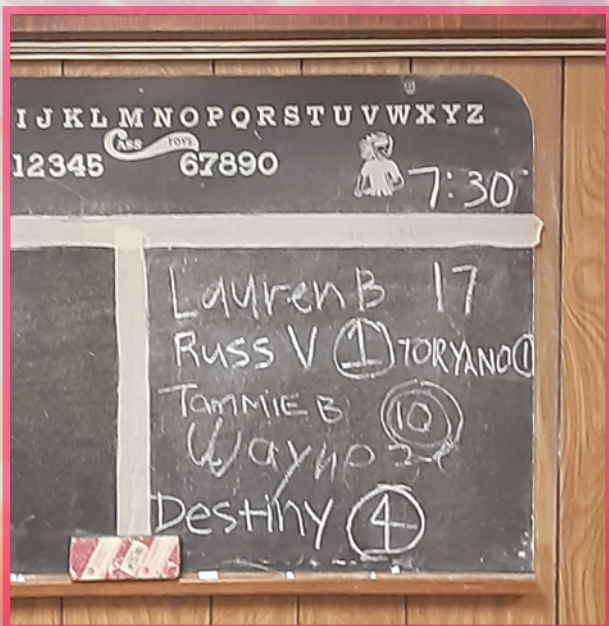 IJKLMNOPQRSTUVWXYZ
CASS TOYS
12345 67890
7:30
Lauren B 17
Russ V 1 TORYANO 1
TAMMIE B 10
Wayne 2
Destiny 4